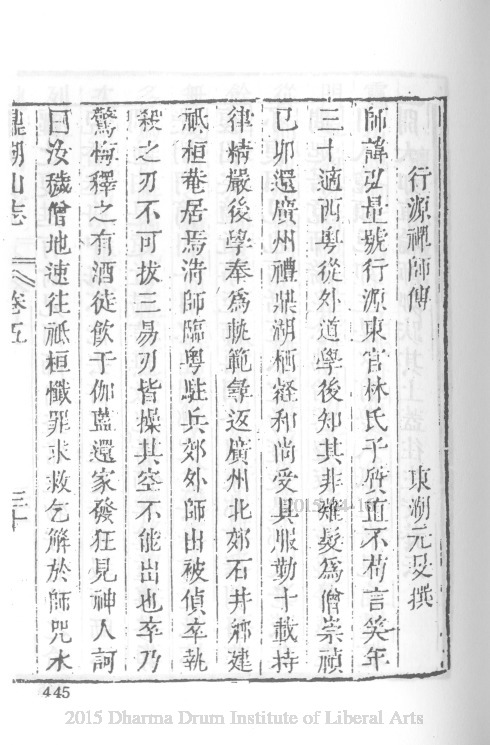 行源禪師傳 東湖元旻撰
師諱弘量號行源東官林氏子質直不苟言笑年
三十適西粵從外道學後知其非薙髮為僧崇禎
己卯還廣州禮鼎湖栖壑和尚受具服勤十載持
律精嚴後學奉為軌範尋返廣州北郊石井鄉建
祇桓菴居焉清師臨粵駐兵郊外師出被偵卒執
殺之刃不可拔三易刃皆操其空不能出也卒乃
驚悔釋之有酒徒飲于伽藍還家發狂見神人訶
曰汝穢僧地速往祇桓懺罪求救乞解於師咒水
鼎湖山志 卷五 三十
445
2015 Dharma Drum Institute of Liberal Arts